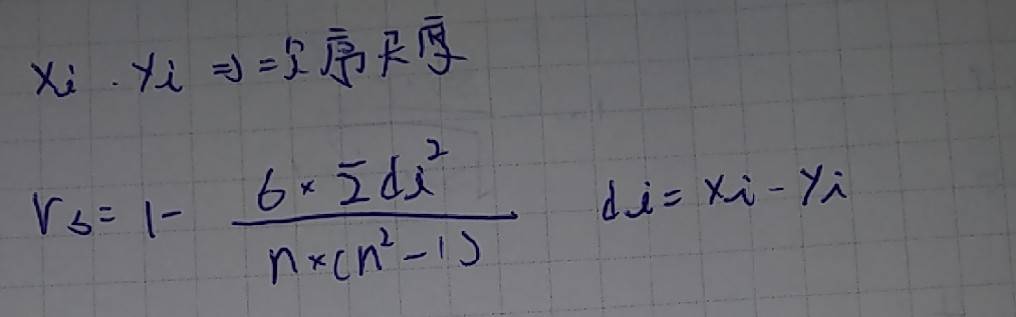 xi . yi ⇒ =定序尺度
rs = 1 - \frac{6 × Σdi²}{n×(n²-1)} di = xi - yi